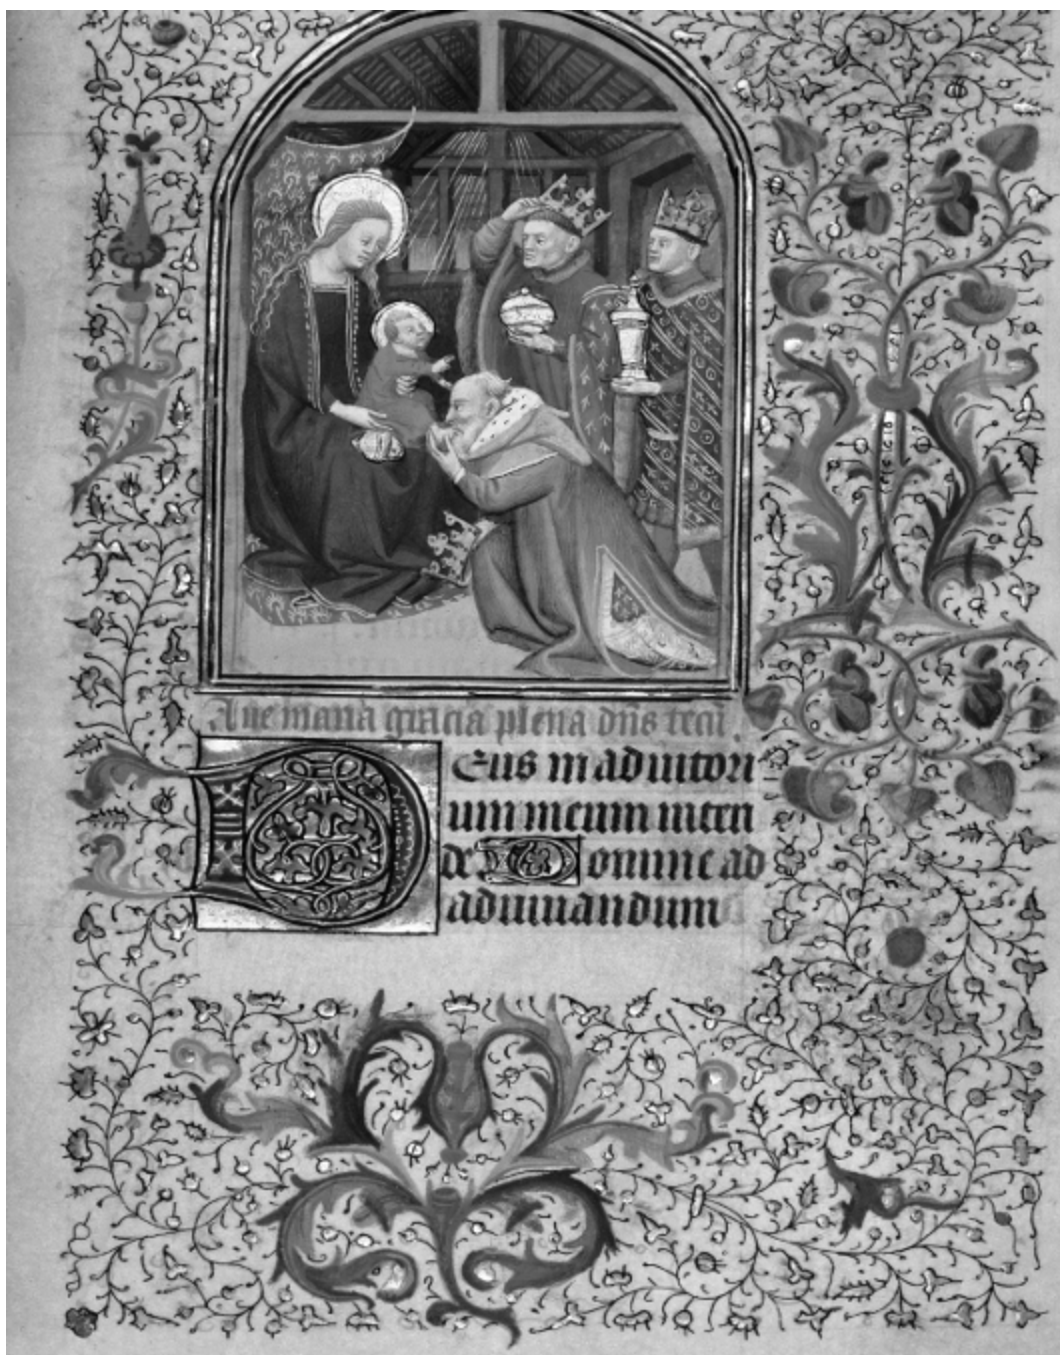 Aue maria gracia plena dñs tecū.
Deus in adiutori
um meum inten
de Domine ad
adiuuandum